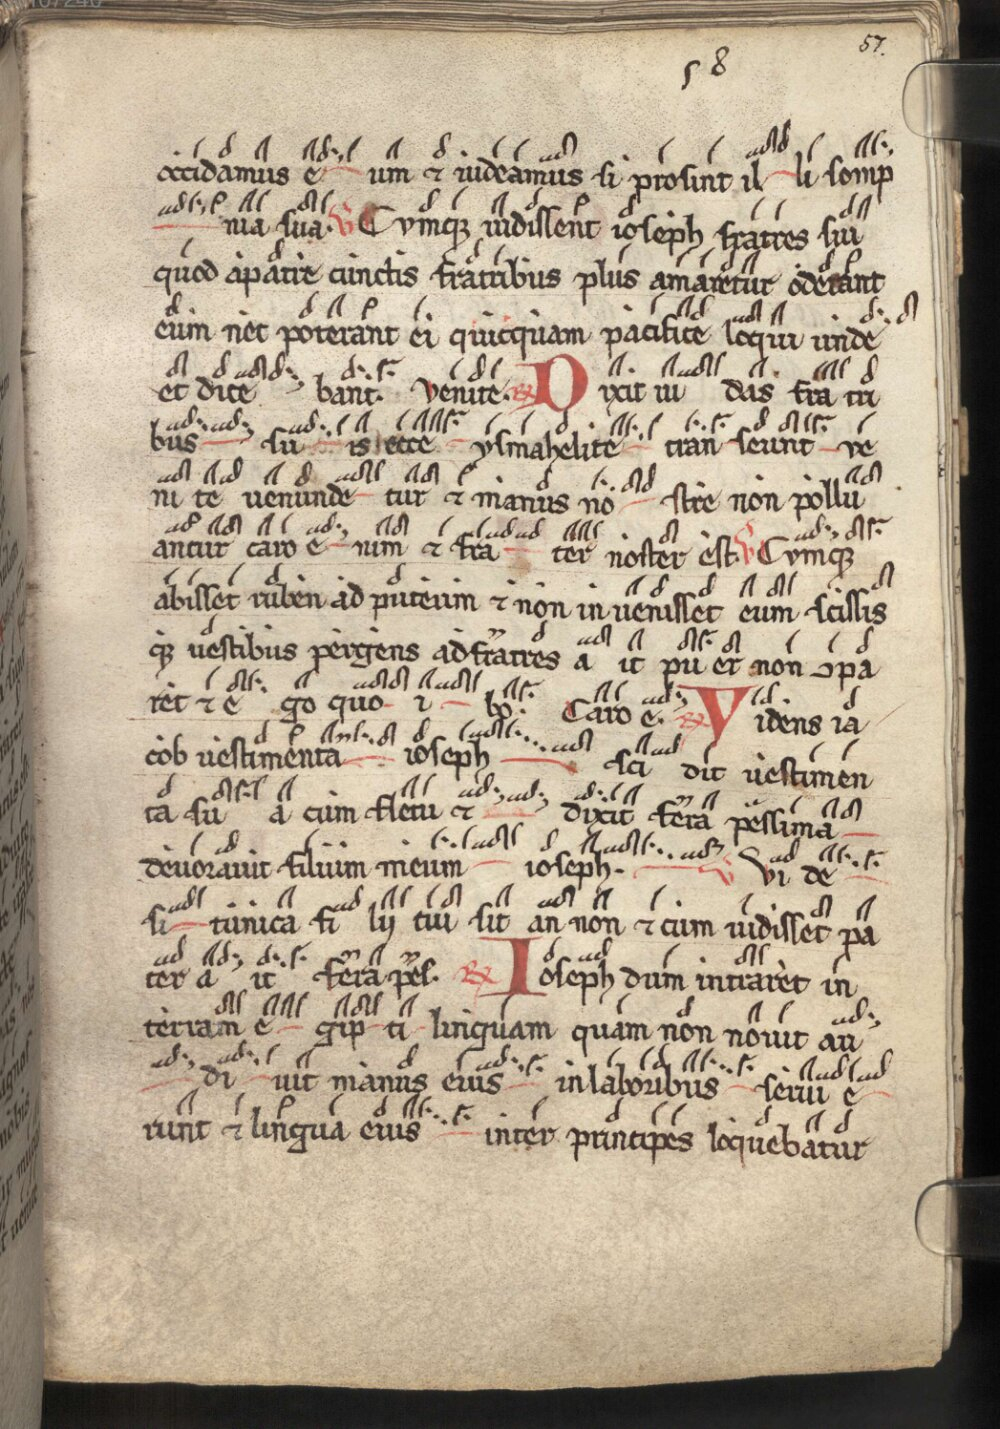 57.
58
occidamus e um ⁊ uideamus si prosint il li somp
nia sua. V Cumq; uidissent ioseph fratres sui
quod a patre cunctis fratribus plus amaretur oderant
eum nec poterant ei quicquam pacifice loqui unde
et dice bant. Venite. R Dixit iu das fra tri
bus su is ecce ysmahelite tran seunt ve
ni te uenunde tur ⁊ manus no stre non pollu
antur caro e nim ⁊ fra ter noster est. V Cumq;
abisset ruben ad puteum ⁊ non in uenisset eum scissis
q; uestibus pergens ad fratres a it pu er non ↄpa
ret ⁊ e go quo i bo. Caro e. R Videns ia
cob uestimenta ioseph sci dit uestimen
ta su a cum fletu ⁊ dixit fera pessima
deuorauit filium meum ioseph. V Vi de
si tunica fi lii tui sit an non ⁊ cum uidisset pa
ter a it fera pes. R Ioseph dum intraret in
terram e gip ti linguam quam non nouit au
di uit manus eius in laboribus serui e
runt ⁊ lingua eius inter principes loquebatur